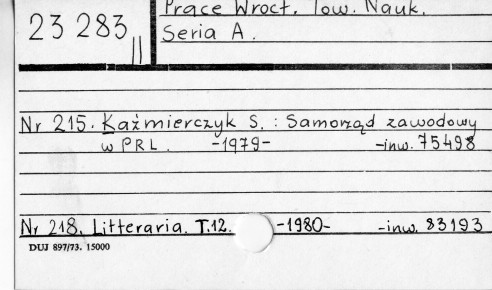 Prace Wrocł. Tow. Nauk.
23 283 II
Seria A.
Nr 215. Kaźmierczyk S. : Samorząd zawodowy
w PRL. -1979- -inw. 75498
Nr 218. Litteraria. T.12. -1980- -inw. 83193
DUJ 897/73. 15000